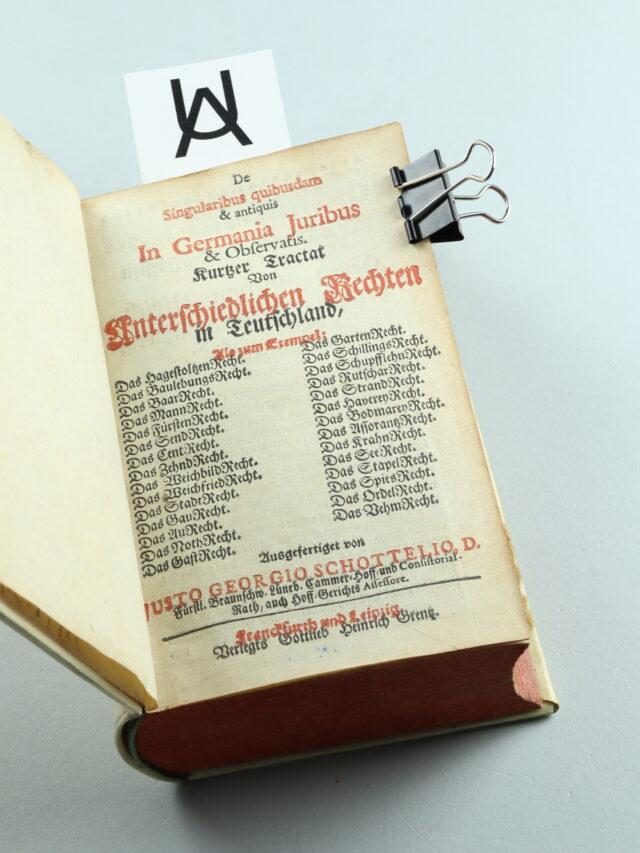 De
Singularibus quibusdam
& antiquis
In Germania Juribus
& Observatis.
Kurtzer Tractat
Von
Unterschiedlichen Rechten
in Teutschland,
Als zum Exempel:
Das HagestoltzenRecht.
Das BaulebungsRecht.
Das BaarRecht.
Das MannRecht.
Das FürstenRecht.
Das SendRecht.
Das CentRecht.
Das ZehndRecht.
Das WeichbildRecht.
Das WeichfriedRecht.
Das StadtRecht.
Das GauRecht.
Das AuRecht.
Das NothRecht.
Das GastRecht.
Das GartenRecht.
Das SchillingsRecht.
Das SchupfflehnRecht.
Das RutscharRecht.
Das StrandRecht.
Das HavereyRecht.
Das BodmareyRecht.
Das AssorantzRecht.
Das KrahnRecht.
Das SeeRecht.
Das StapelRecht.
Das SpiesRecht.
Das OrdelRecht.
Das VehmRecht.
Ausgefertiget von
JUSTO GEORGIO SCHOTTELIO, D.
Fürstl. Braunschw. Lüneb. Cammer-Hoff-und Consistorial-
Rath, auch Hoff-Gerichts Assessore.
Franckfurth und Leipzig,
Verlegts Gottlieb Heinrich Grentz.